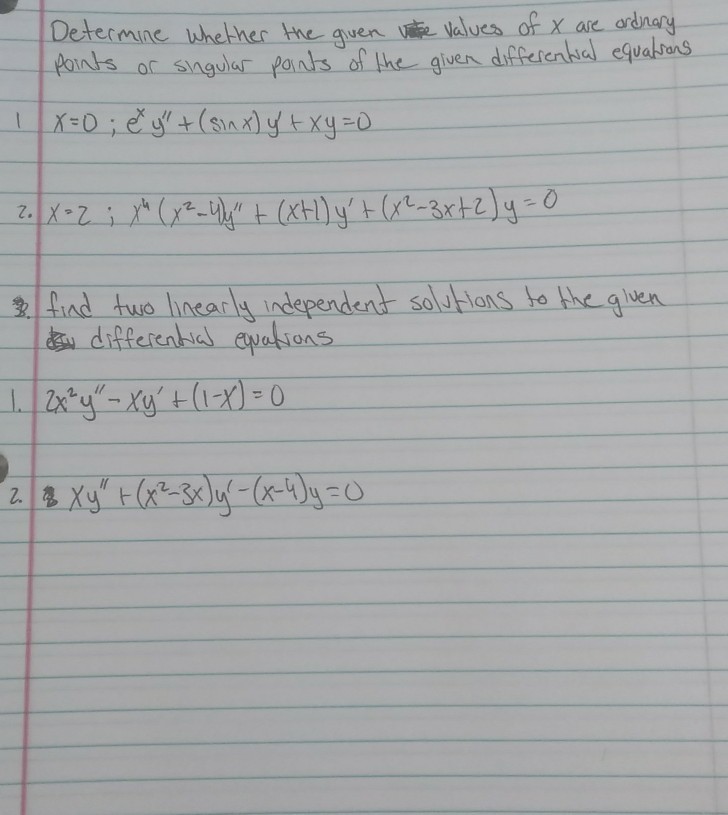 Determine whether the given values of x are ordinary
points or singular points of the given differential equations
1 x=0 ; eˣy" + (sinx) y' + xy=0
2. x=2 ; x⁴ (x²-4)y" + (x+1) y' + (x²-3x+2) y = 0
find two linearly independent solutions to the given
differential equations
1. 2x²y" - xy' + (1-x) = 0
2. xy" + (x²-3x)y' - (x-4)y=0